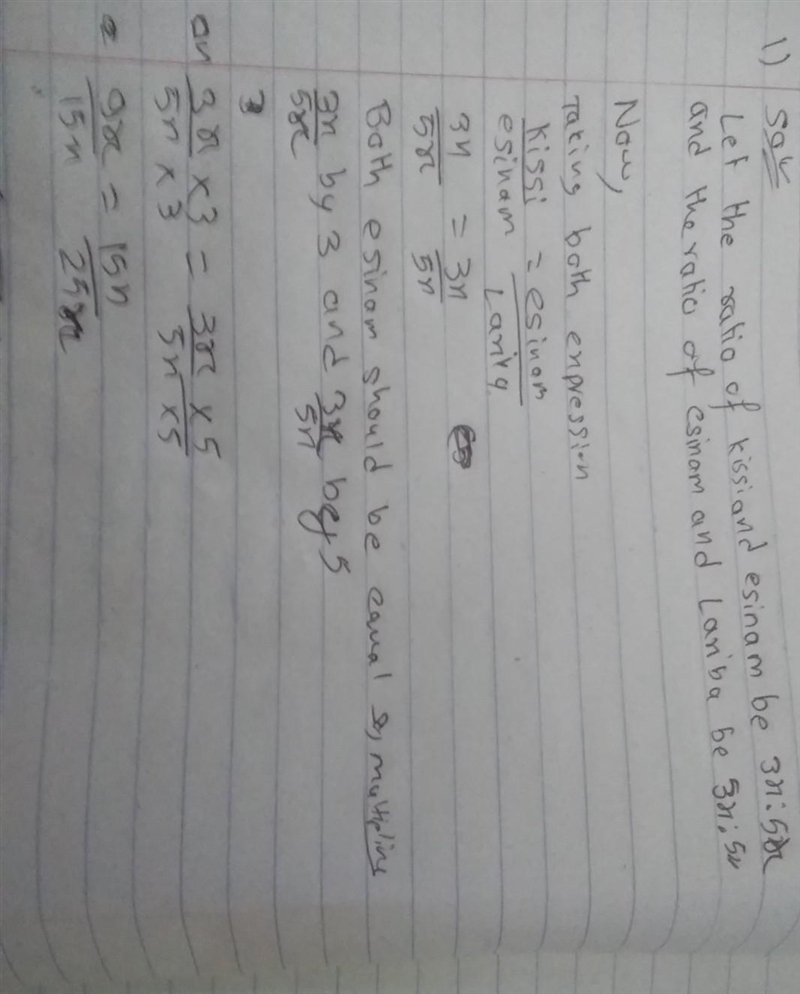 1) Soln
Let the ratio of kissi and esinam be 3x:5x
and the ratio of esinam and Lariba be 3x:5x
Now,
Taking both expression
kissi = esinam
esinam Lariba
3x = 3x
5x 5x
Both esinam should be equal so, multipline
3x by 3 and 3x by 5
5x 5x
or 3x x 3 = 3x x 5
5x x 3 5x x 5
9x = 15x
15x 25x